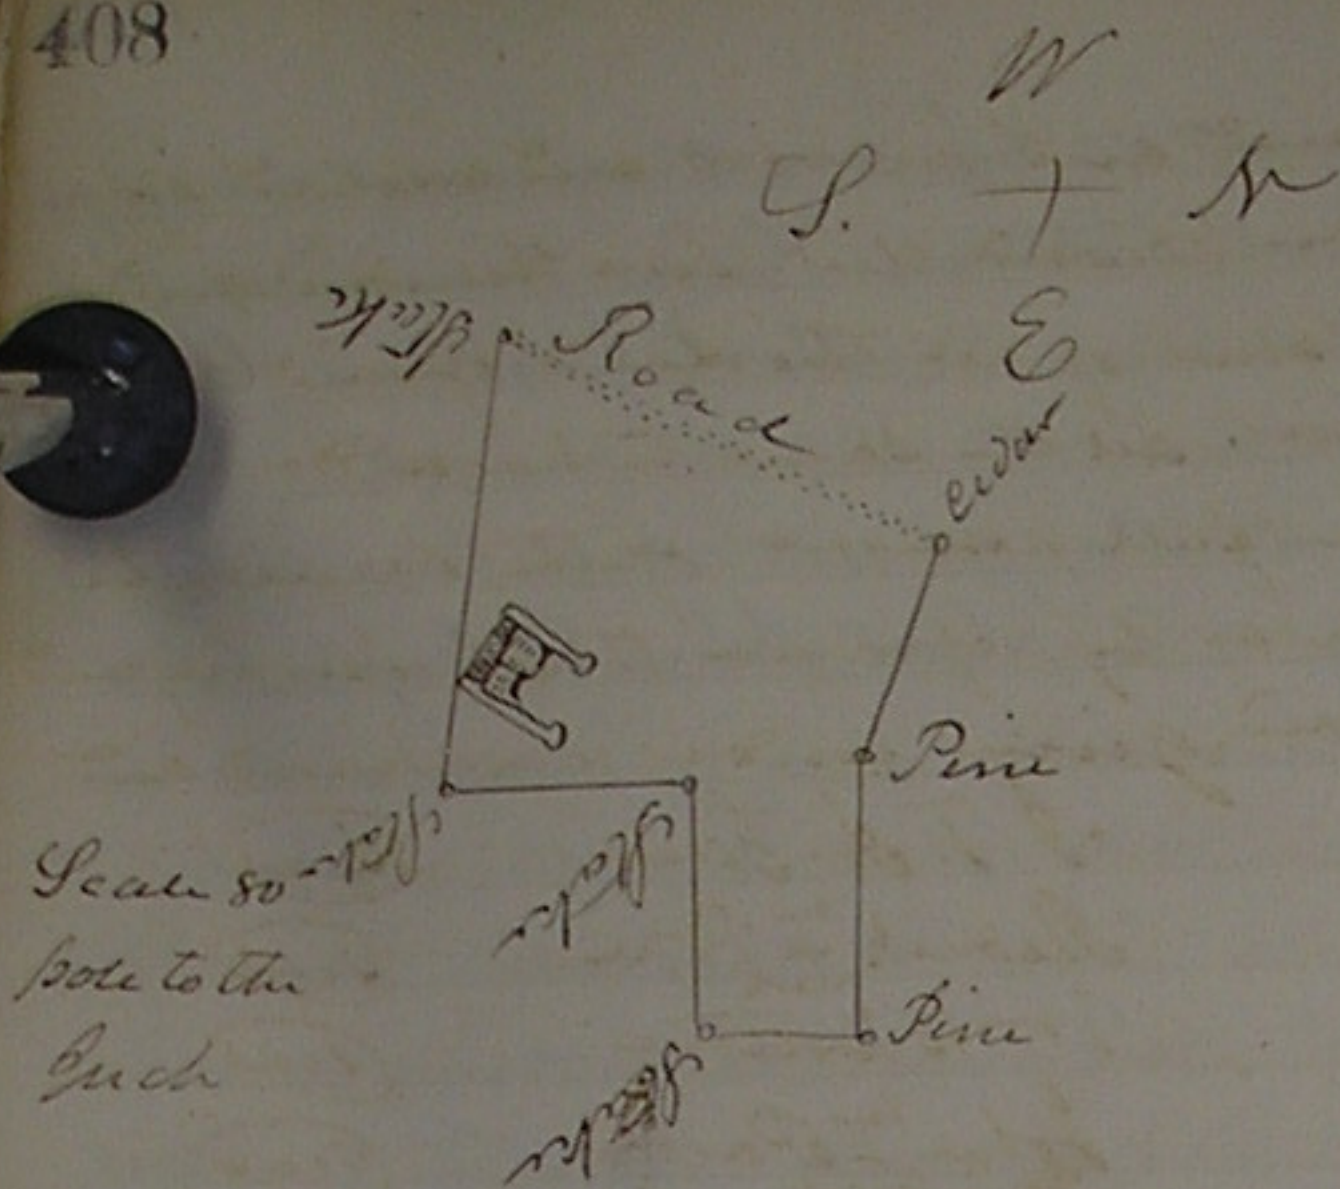 408
W
S. N
E
Stake
Road
Cedar
Pine
Stake
Stake
Scale 80
pole to the
Inch
Pine
Stake